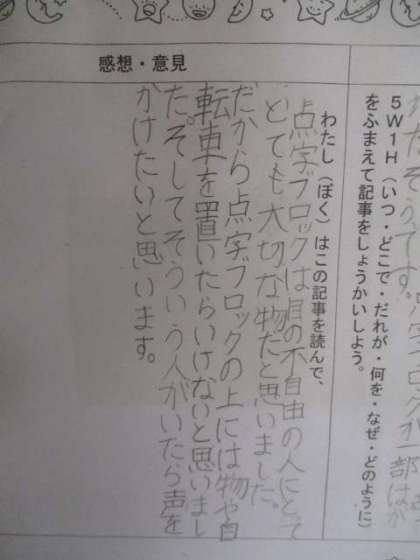 感想・意見
かたそうです。
5W1H（いつ・どこで・だれが・何を・なぜ・どのように）
をふまえて記事をしょうかいしよう。
わたし（ぼく）はこの記事を読んで、
点字ブロックは目の不自由の人にとって
とても大切な物だと思いました。
だから点字ブロックの上には物や自
転車を置いたらいけないと思いまし
た。そしてそういう人がいたら声を
かけたいと思います。